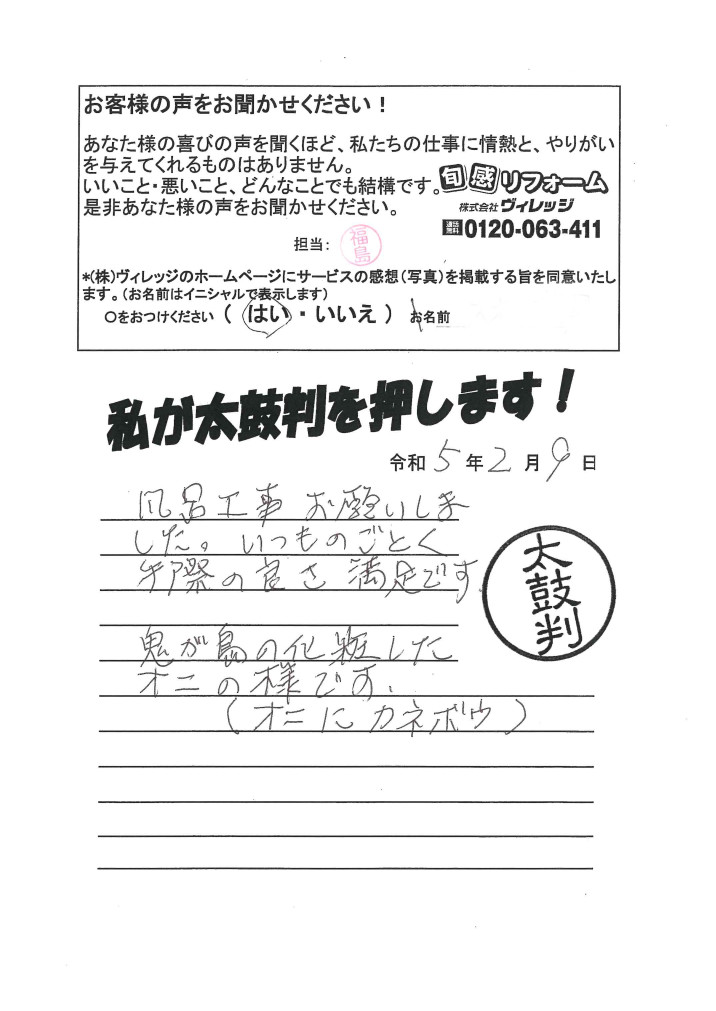 お客様の声をお聞かせください！
あなた様の喜びの声を聞くほど、私たちの仕事に情熱と、やりがい
を与えてくれるものはありません。
いいこと・悪いこと、どんなことでも結構です。
是非あなた様の声をお聞かせください。
旬感リフォーム
株式会社ヴィレッジ
通話無料 0120-063-411
担当： 福島
*(株)ヴィレッジのホームページにサービスの感想（写真）を掲載する旨を同意いたし
ます。（お名前はイニシャルで表示します）
〇をおつけください （ はい ・ いいえ ） お名前
私が太鼓判を押します！
令和 5 年 2 月 9 日
風呂工事 お願いしま
した。いつものごとく
手際の良さ 満足です
太鼓判
鬼が島の化粧した
オニの様です.
（オニにカネボウ）